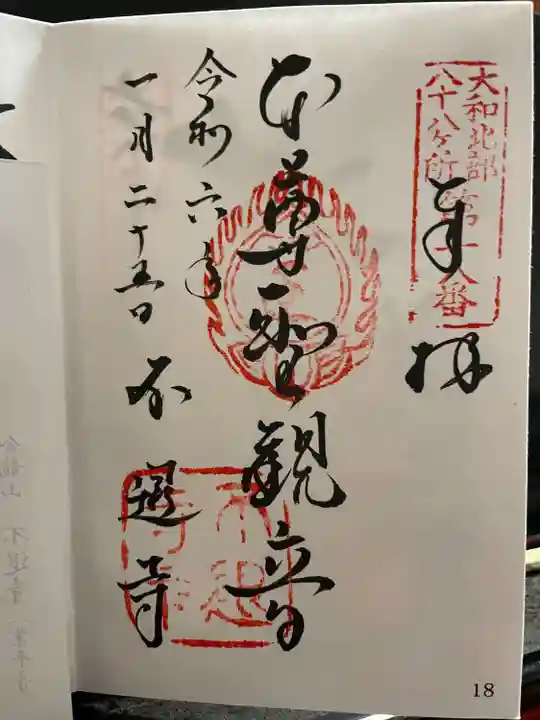 大和北部
八十八ヶ所第十八番
奉拝
本尊聖観音
令和六年
一月二十五日
不退寺
不退寺
18